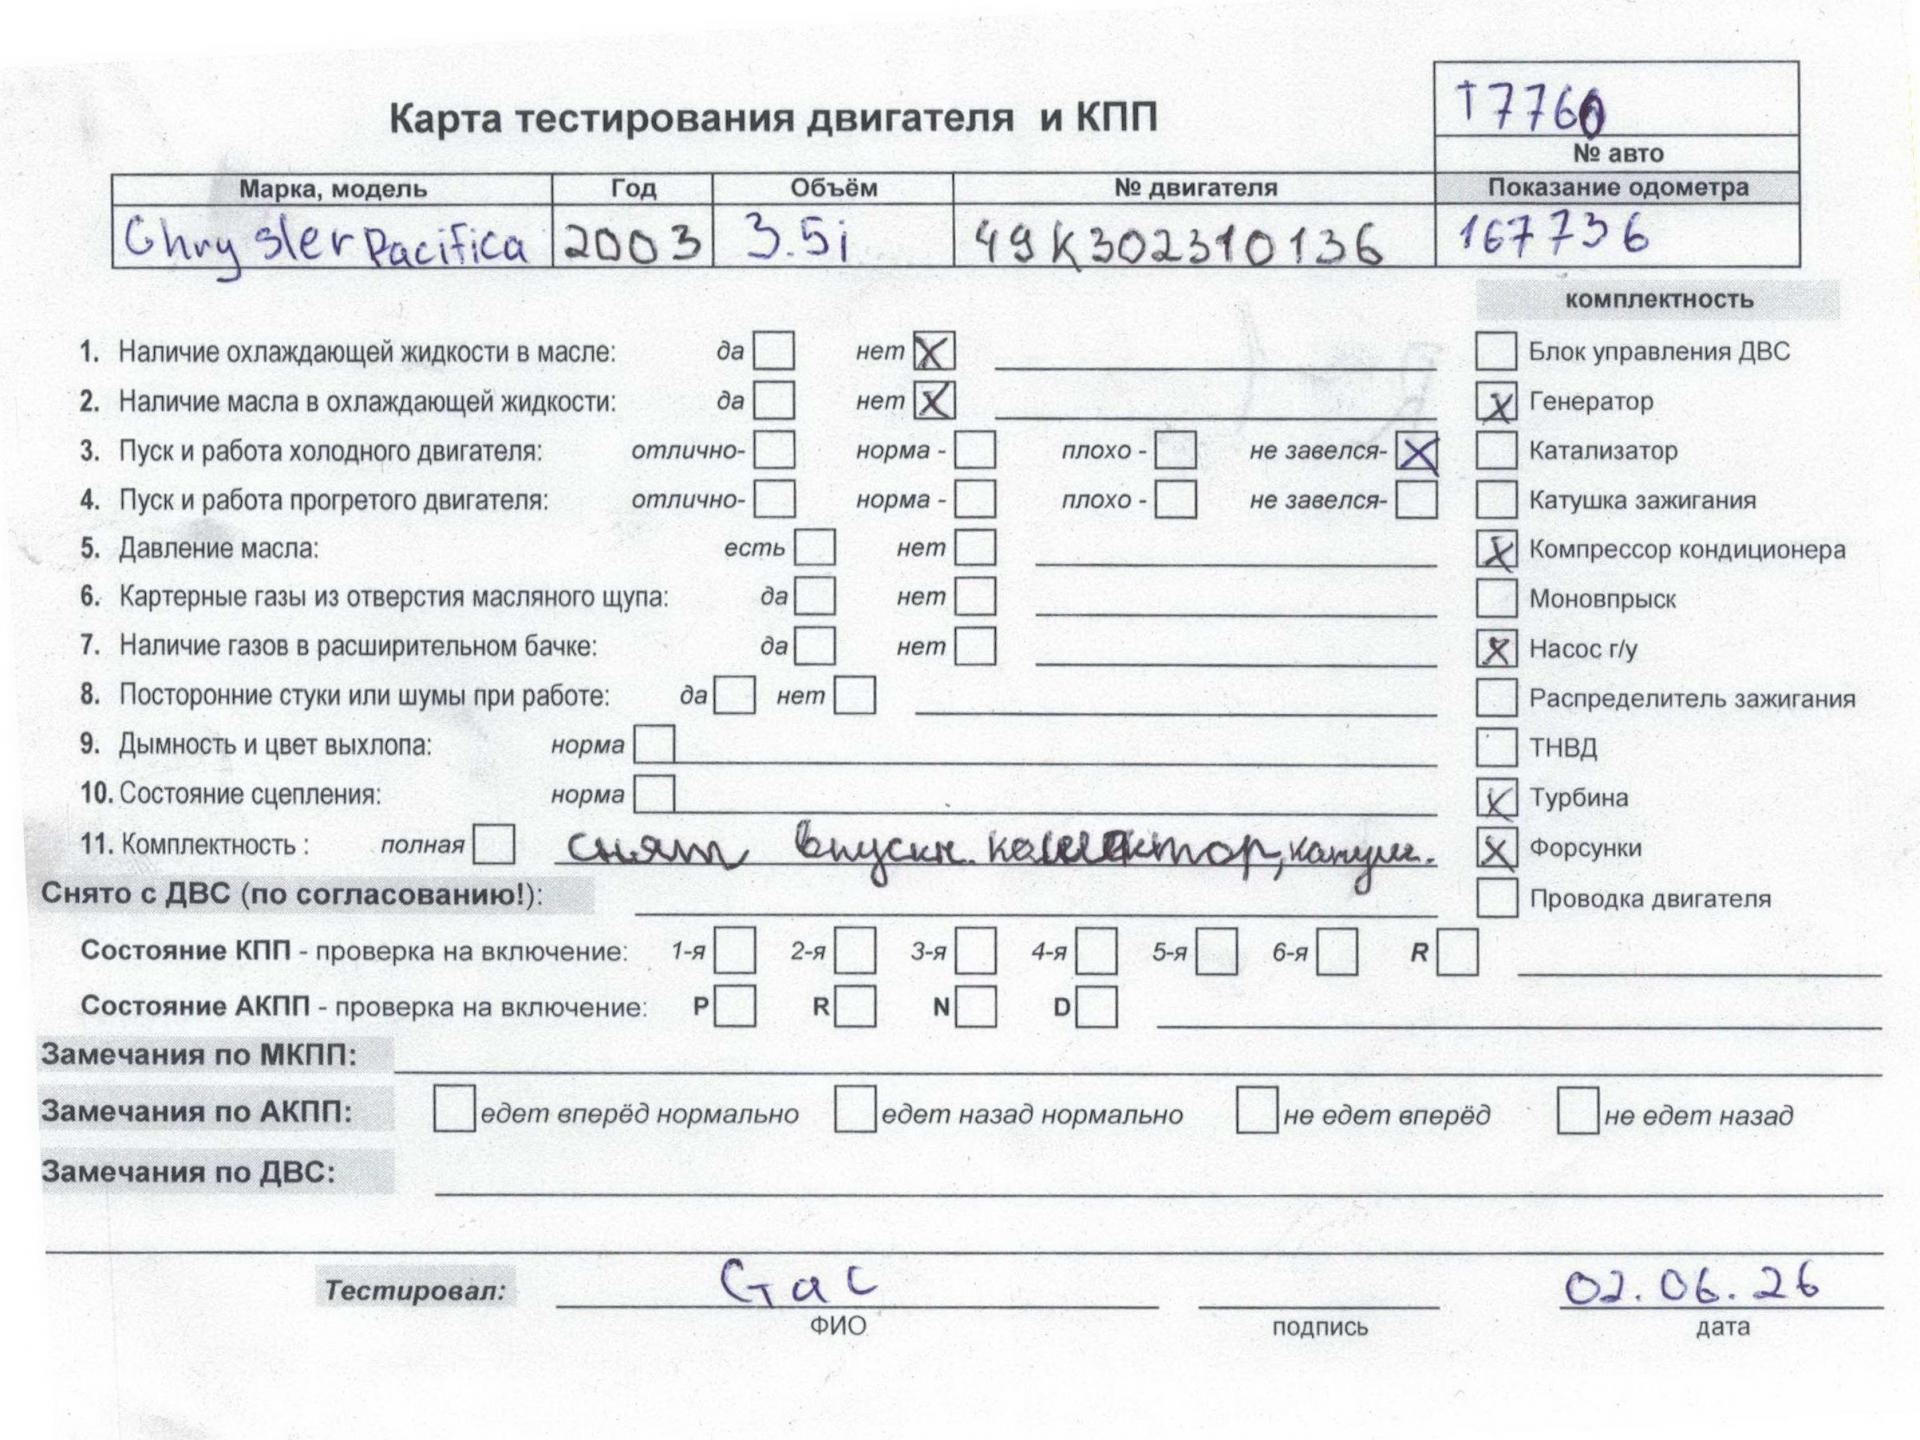 T7760
Карта тестирования двигателя и КПП
№ авто
Марка, модель Год Объём № двигателя Показание одометра
Chrysler Pacifica 2003 3.5i 49K302310136 167736
комплектность
1. Наличие охлаждающей жидкости в масле: да нет X Блок управления ДВС
2. Наличие масла в охлаждающей жидкости: да нет X X Генератор
3. Пуск и работа холодного двигателя: отлично- норма - плохо - не завелся- X Катализатор
4. Пуск и работа прогретого двигателя: отлично- норма - плохо - не завелся- Катушка зажигания
5. Давление масла: есть нет X Компрессор кондиционера
6. Картерные газы из отверстия масляного щупа: да нет Моновпрыск
7. Наличие газов в расширительном бачке: да нет X Насос г/у
8. Посторонние стуки или шумы при работе: да нет Распределитель зажигания
9. Дымность и цвет выхлопа: норма ТНВД
10. Состояние сцепления: норма X Турбина
11. Комплектность : полная снят впускн. коллектор, катуш. X Форсунки
Снято с ДВС (по согласованию!): Проводка двигателя
Состояние КПП - проверка на включение: 1-я 2-я 3-я 4-я 5-я 6-я R
Состояние АКПП - проверка на включение: P R N D
Замечания по МКПП:
Замечания по АКПП: едет вперёд нормально едет назад нормально не едет вперёд не едет назад
Замечания по ДВС:
Тестировал: Стас 02.06.26
ФИО подпись дата